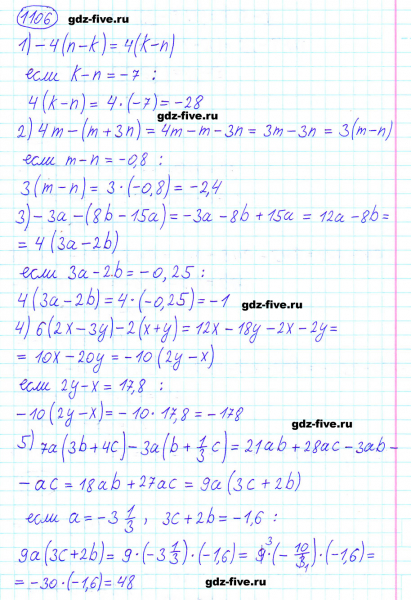 1106 gdz-five.ru
1) -4(n-k) = 4(k-n)
если k-n = -7 :
4(k-n) = 4·(-7) = -28
gdz-five.ru
2) 4m-(m+3n) = 4m-m-3n = 3m-3n = 3(m-n)
если m-n = -0,8 :
gdz-five.ru
3(m-n) = 3·(-0,8) = -2,4
3) -3a-(8b-15a) = -3a-8b+15a = 12a-8b=
= 4(3a-2b)
если 3a-2b = -0,25 :
4(3a-2b) = 4·(-0,25) = -1
gdz-five.ru
4) 6(2x-3y)-2(x+y) = 12x-18y-2x-2y=
= 10x-20y = -10(2y-x)
если 2y-x = 17,8 :
-10(2y-x) = -10·17,8 = -178
gdz-five.ru
5) 7a(3b+4c)-3a(b+1/3c) = 21ab+28ac-3ab-
-ac = 18ab+27ac = 9a(3c+2b)
если a = -3 1/3, 3c+2b = -1,6 :
9a(3c+2b) = 9·(-3 1/3)·(-1,6) = 9 3·(-10/3 1)·(-1,6) =
= -30·(-1,6) = 48
gdz-five.ru